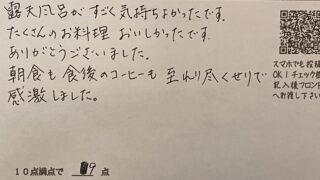 露天風呂がすごく気持ちよかったです。
たくさんのお料理 おいしかったです。
ありがとうございました。
朝食も食後のコーヒーも至れり尽くせりで
感激しました。
スマホでも投稿
OK！チェック
記入後フロント
へお渡し下さい
10点満点で 9 点